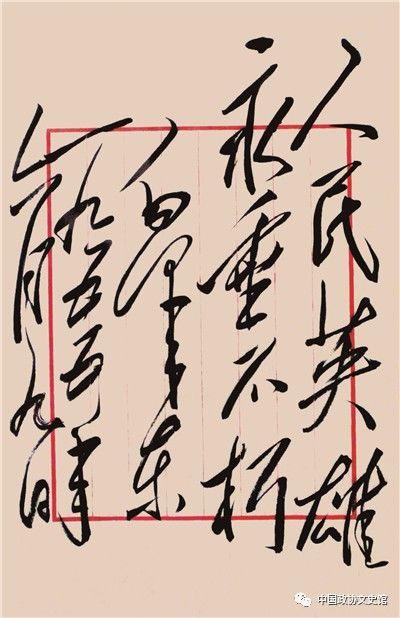 人民英雄
永垂不朽
毛泽东
一九五五年
六月九日
中国政协文史馆